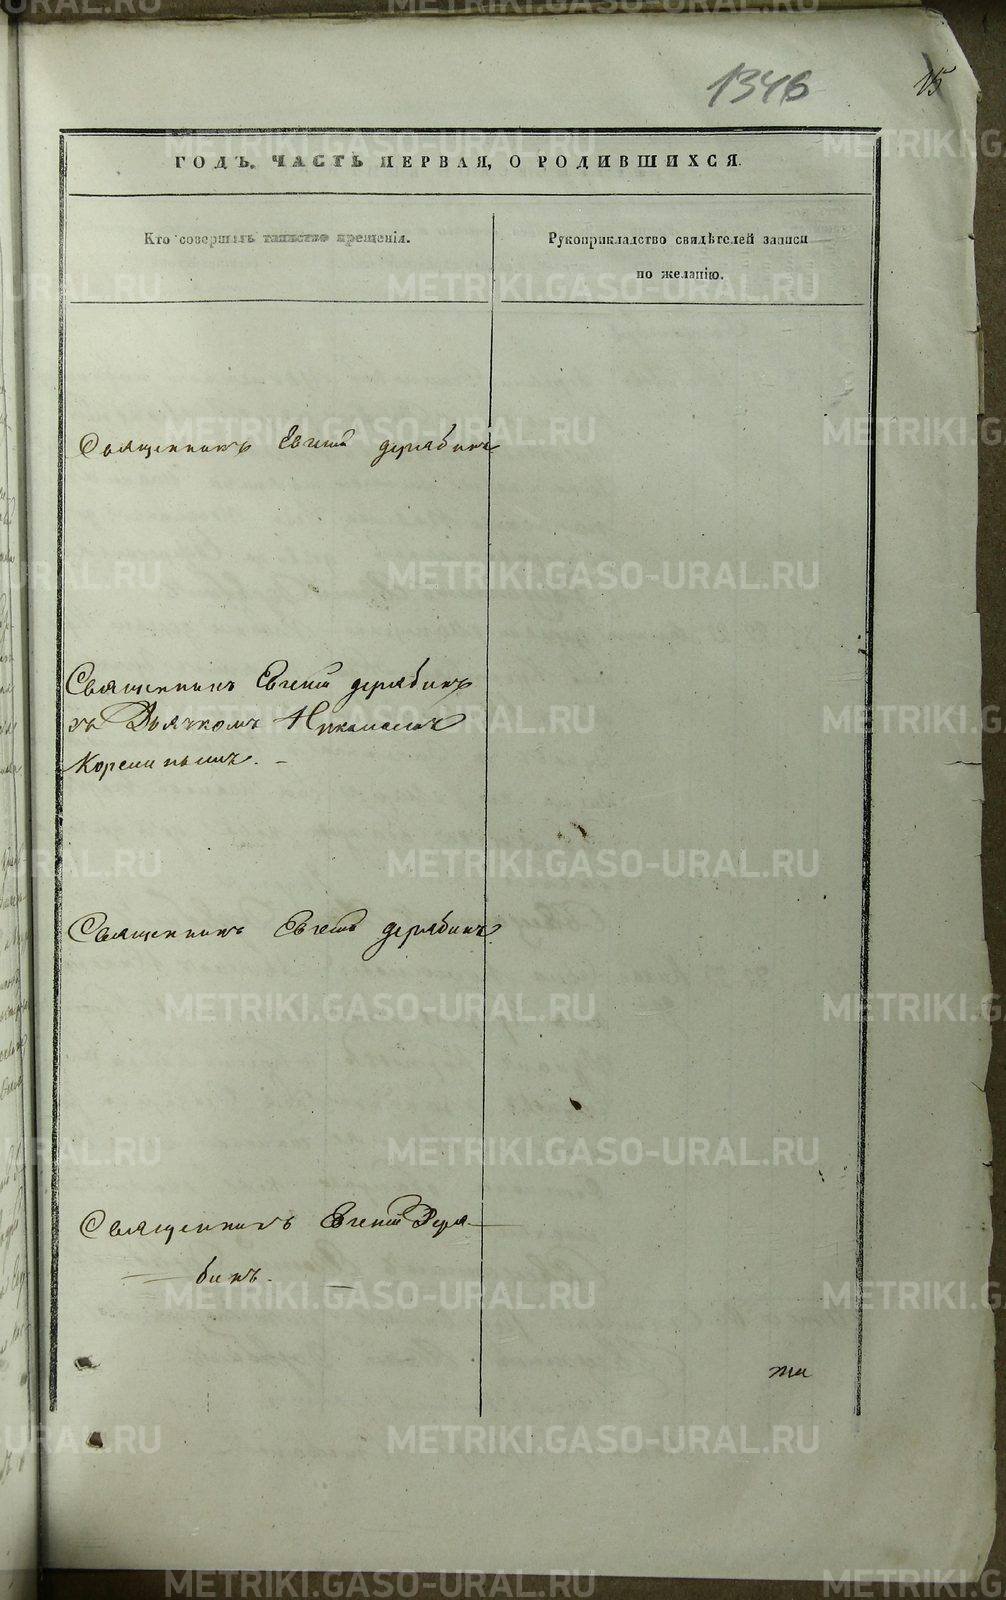 1346
15
ГОДЪ. ЧАСТЬ ПЕРВАЯ, О РОДИВШИХСЯ.
Кто совершалъ таинство крещенія.
Рукоприкладство свидѣтелей записи
по желанію.
Священникъ Евгеній Дерябинъ
Священникъ Евгеній Дерябинъ
съ Дьячкомъ Николаемъ
Священникъ Евгеній Дерябинъ.
Священникъ Евгеній Деря-
бинъ.
METRIKI.GASO-URAL.RU